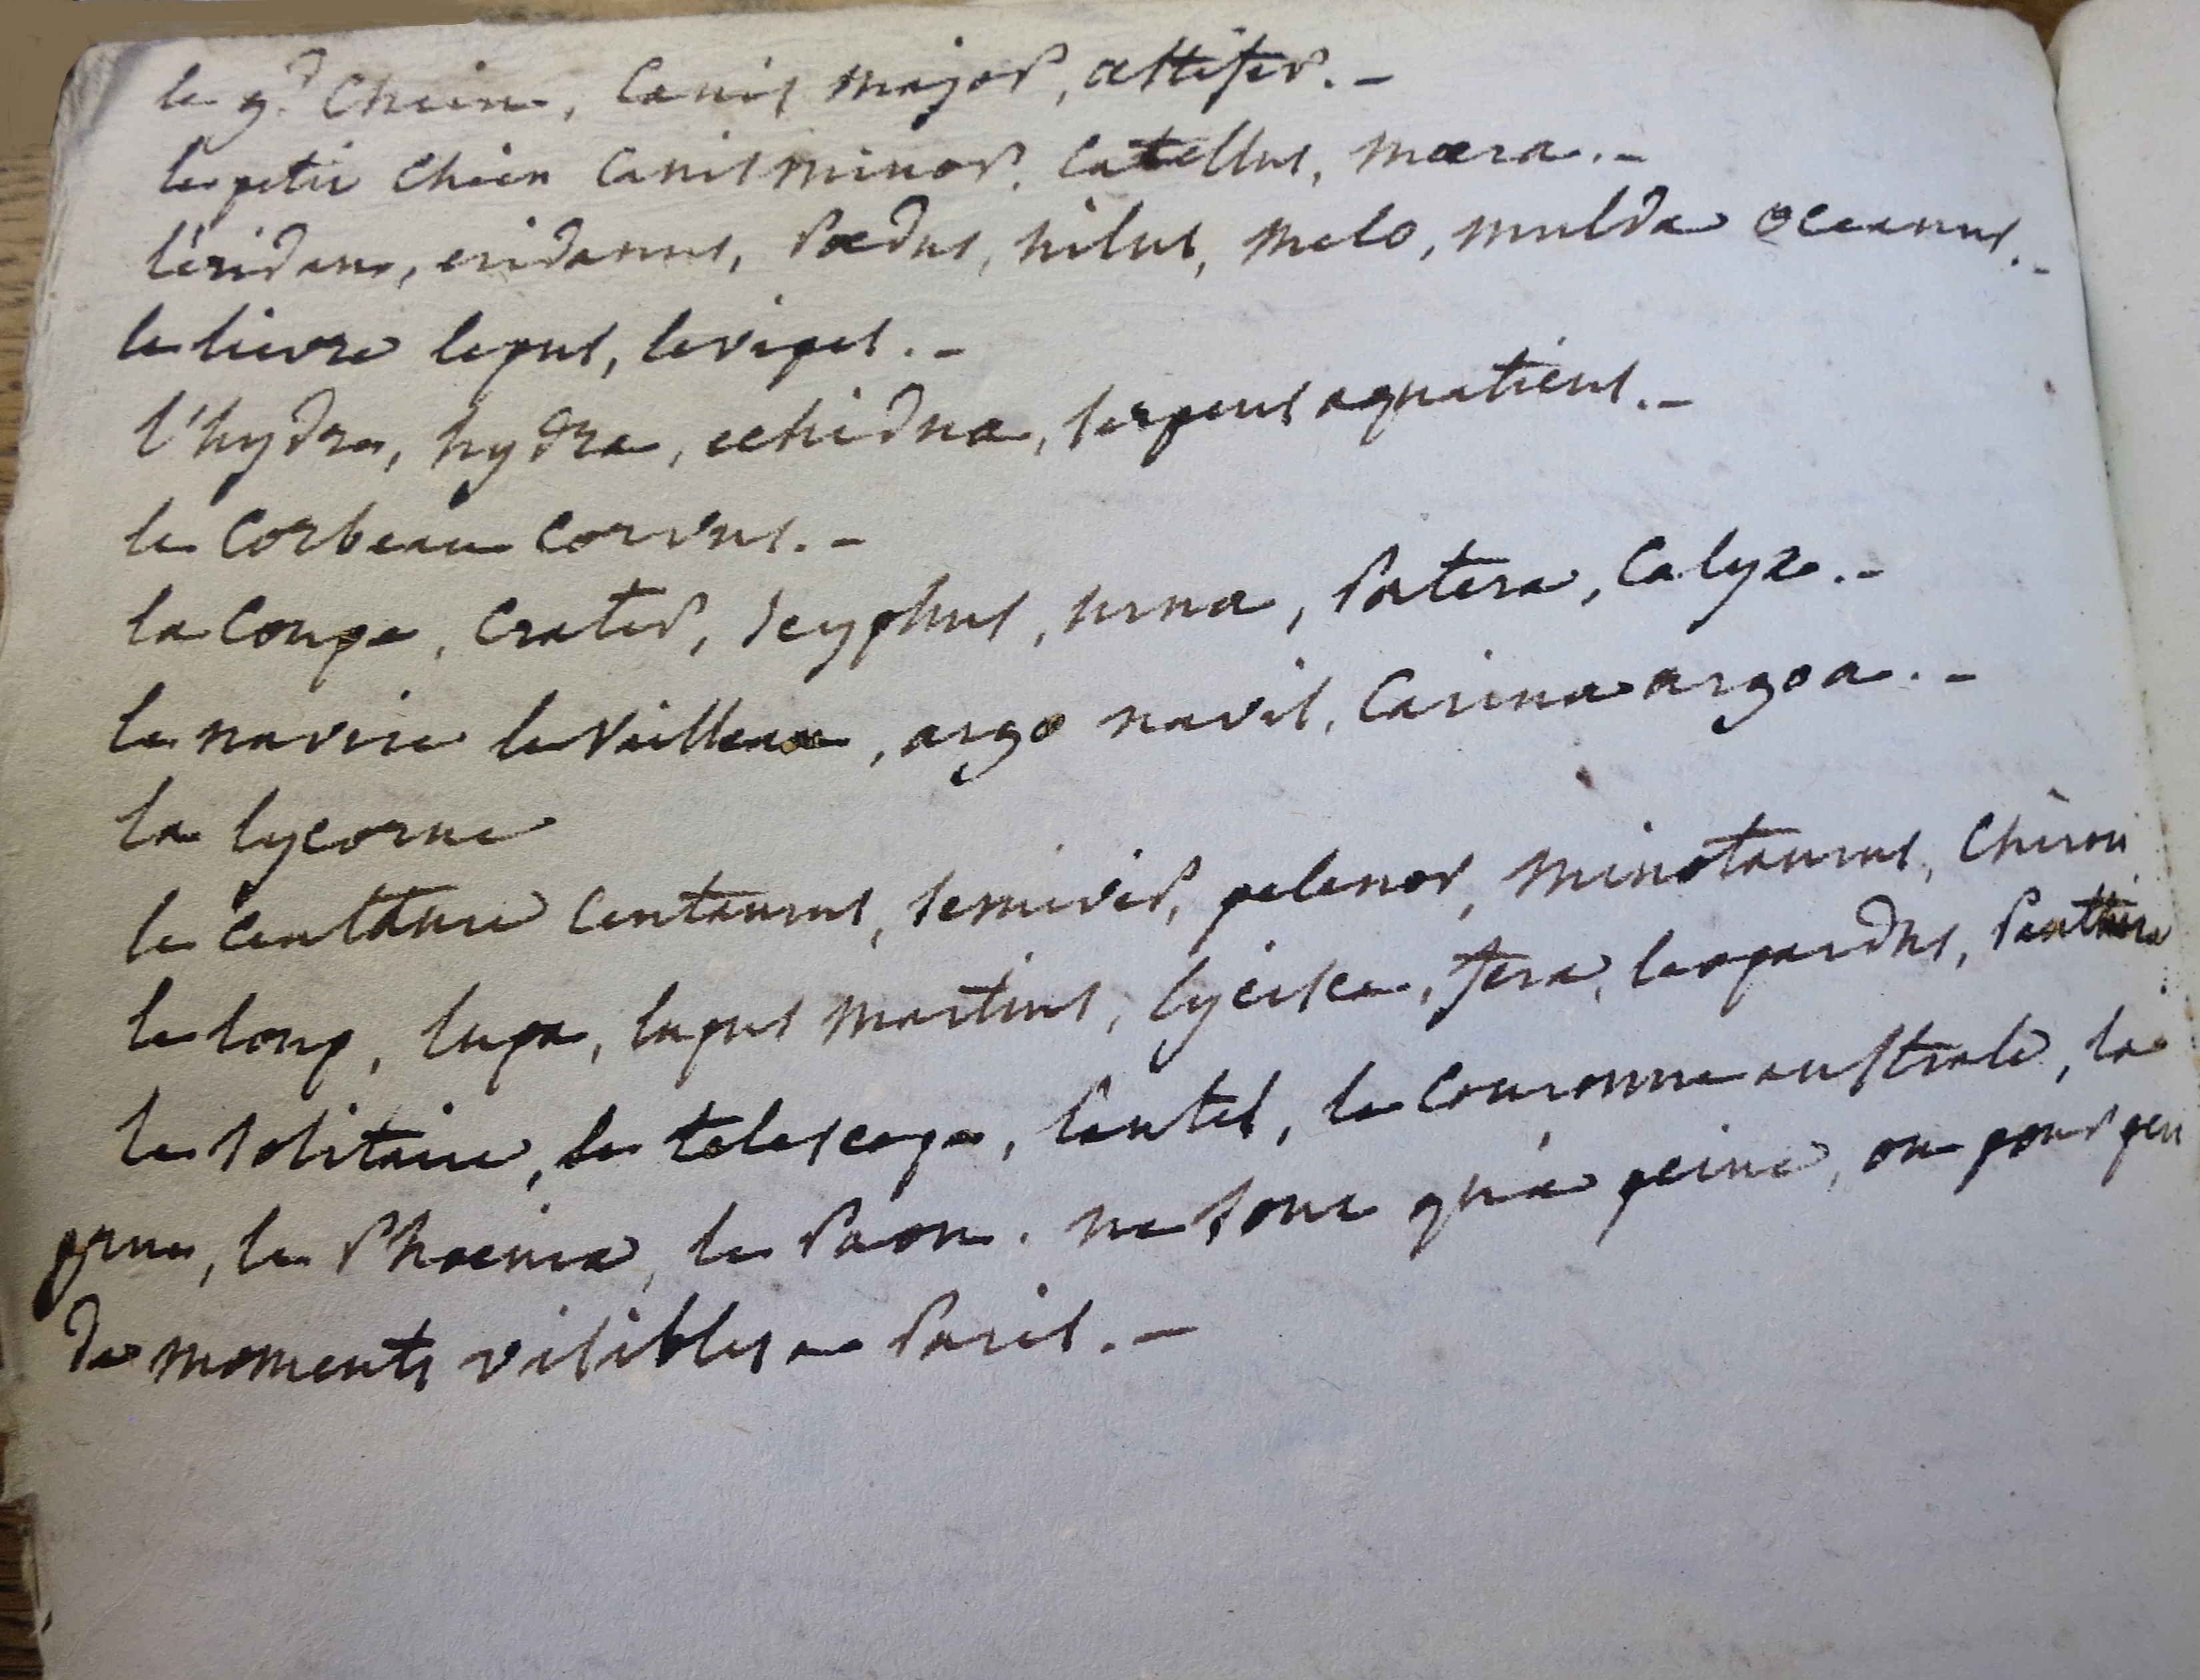 le g.d Chien, Canis major, æstifer. -
le petit chien Canis minor. Catellus, mæra. -
l'éridan, eridanus, Padus, nilus, melo, mulda oceanus. -
le lievre lepus, levipes. -
l'hydre, hydra, echidna, serpens aquaticus. -
le Corbeau Corvus. -
la Coupe, Crater, scyphus, urna, Patera, Calyx. -
le navire le vaisseau, argo navis, Carina argoa. -
la lycorne
le centaure Centaurus, semivir, pelenor, minotaurus, Chiron
le loup, lupa, lupus martius, lycisca, fera, leopardus, Panthera
le solitaire, le telescope, l'autel, la couronne australe, la
grue, le Phoenix, le Paon. ne sont qu'a peine, ou pour peu
de moments visibles a Paris. -